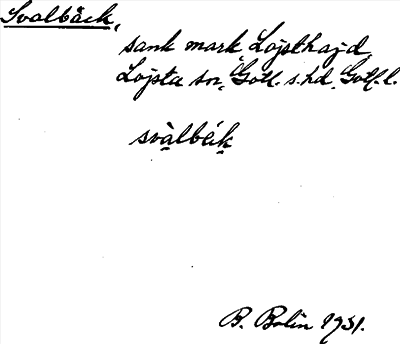 Svalbäck,
sank mark, Lojsthajd,
Lojsta sn, Gotl. s. hd. Gotl. l.
svàlbák
B. Bolin 1931.